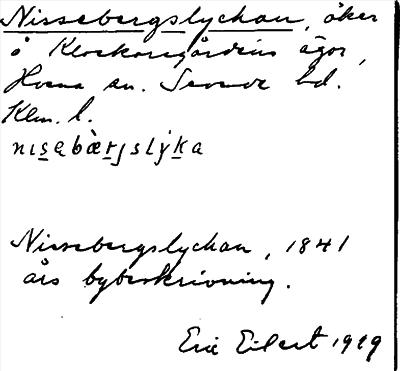 Nissebergslyckan, åker
å Klockaregårdens ägor,
Hvena sn. Sevede hd.
Klm. l.
nɪsəbæ̀rjslýka
Nissebergslyckan, 1841
års bybeskrivning.
Eric Eilert 1929